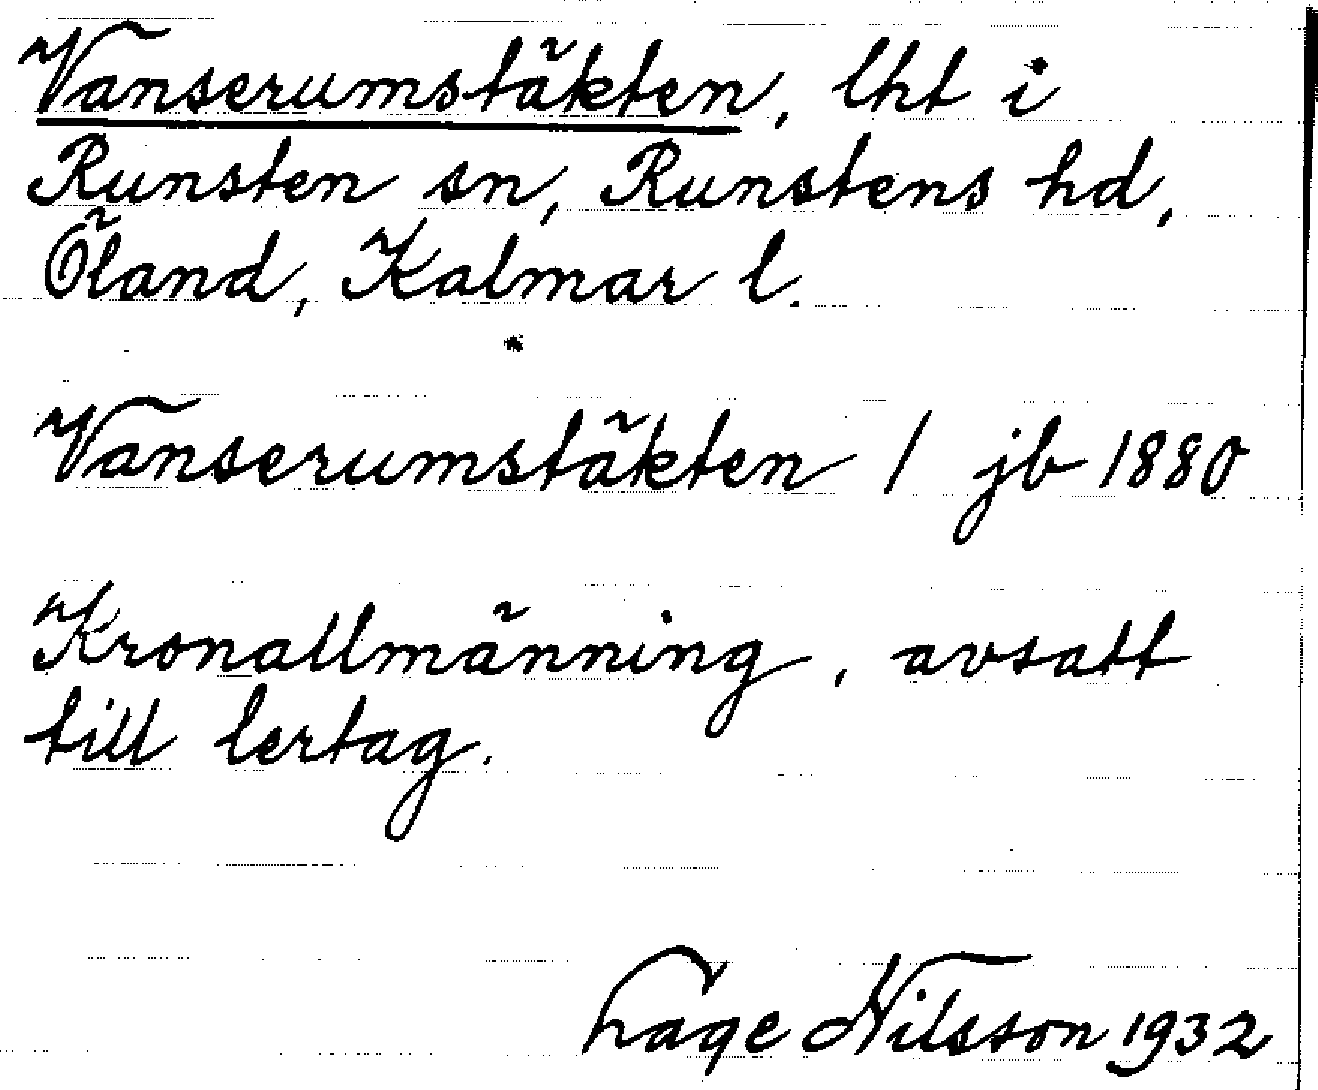 Vanserumstäkten, lht i
Runsten sn, Runstens hd,
Öland, Kalmar l.
Vanserumstäkten 1 jb 1880
Kronallmänning, avsatt
till lertag.
Lage Nilsson 1932